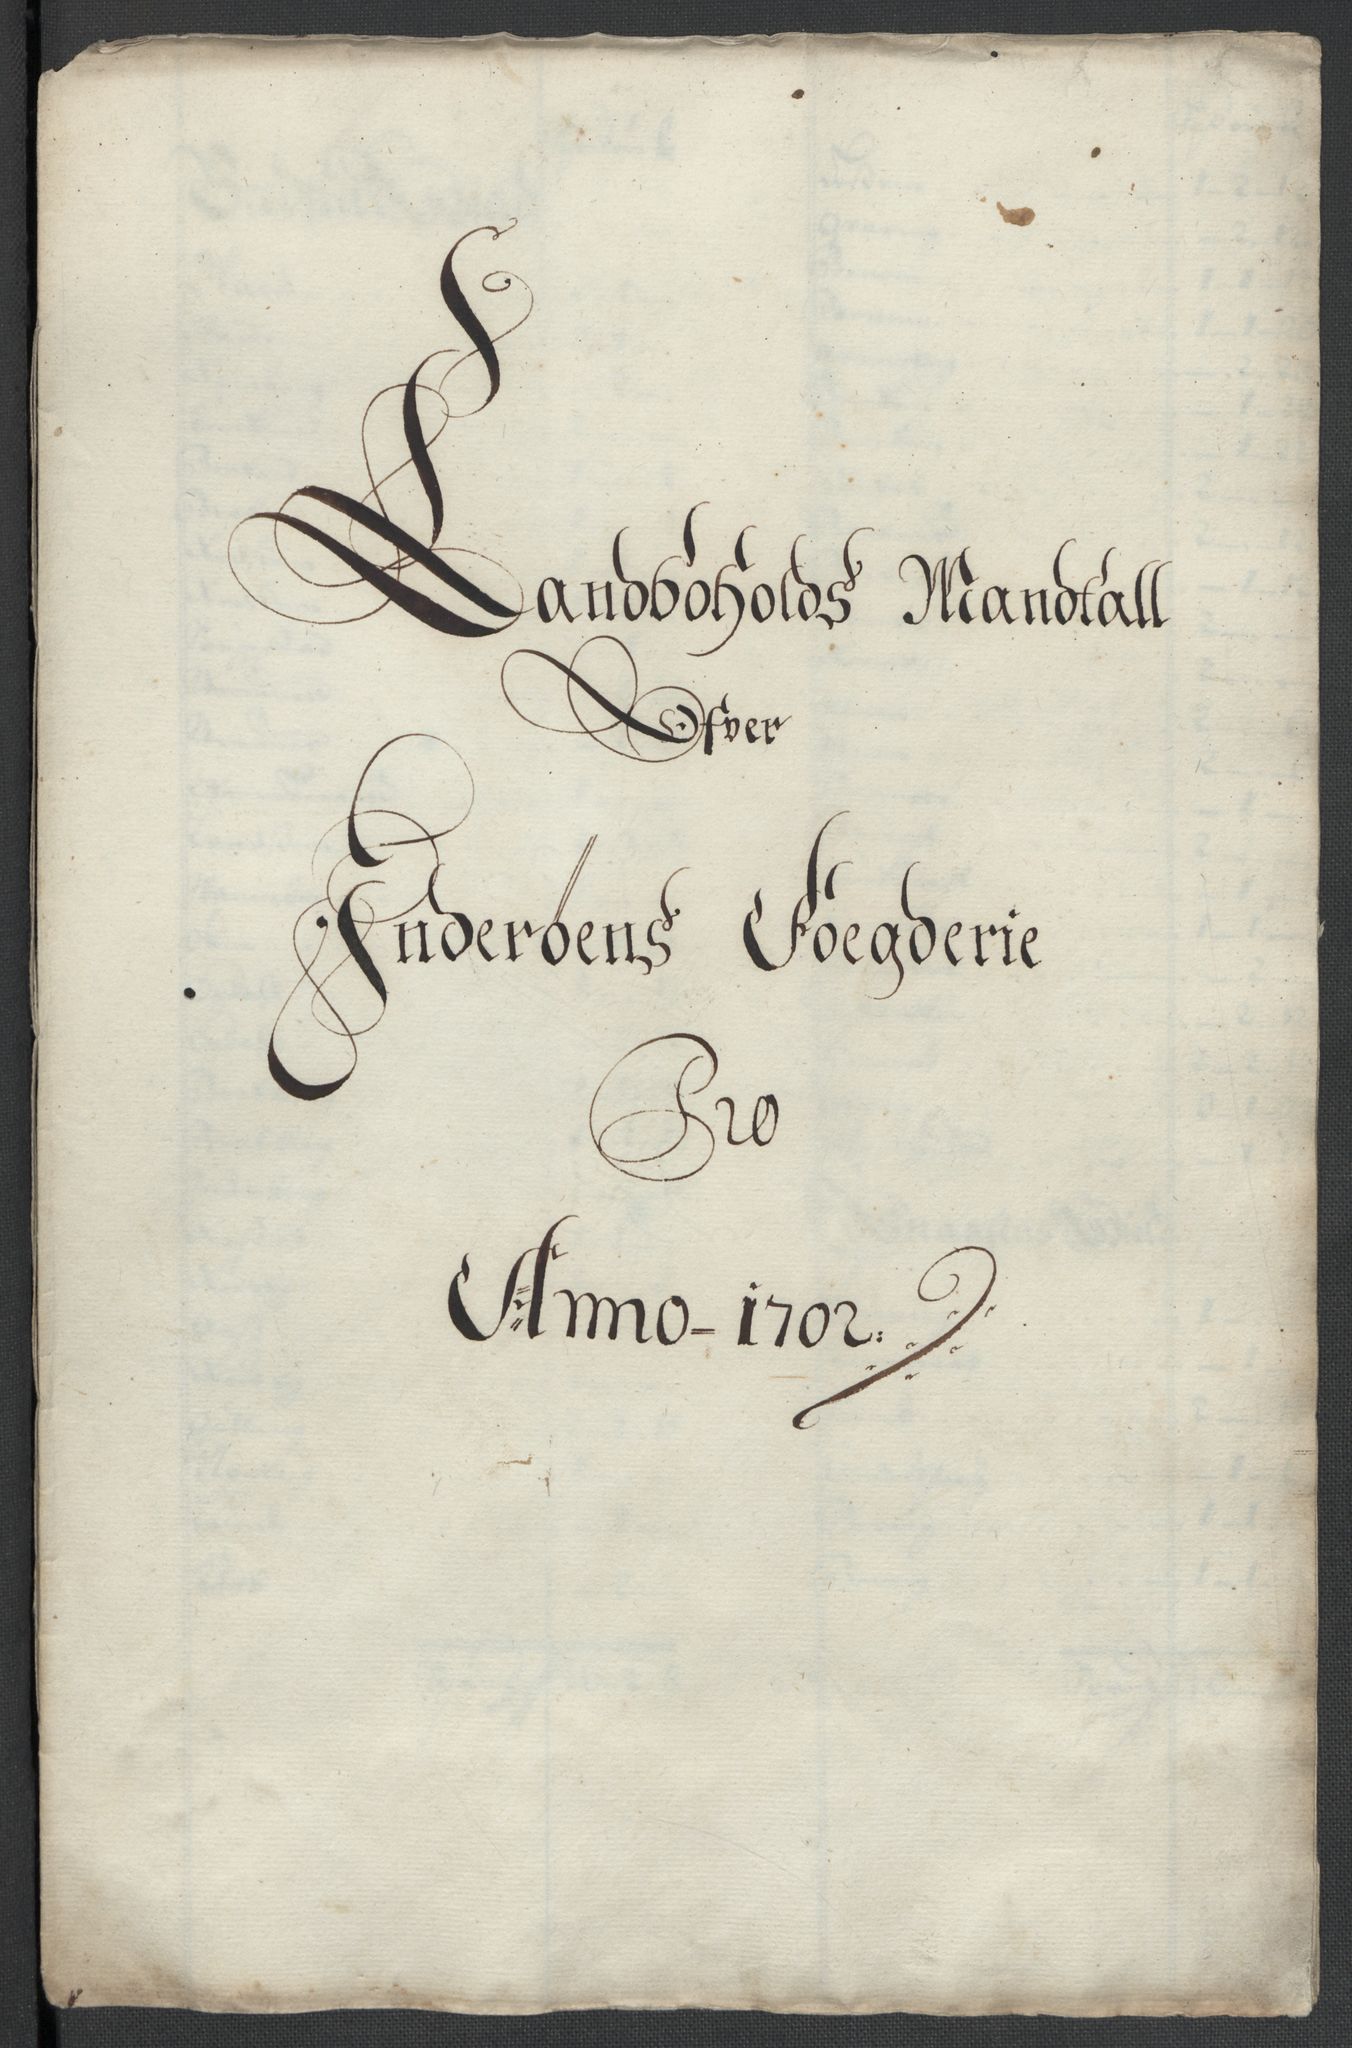 Landboholds Mandtall
Ofver
Inderøens Foegderie
Pro
Anno - 1702.